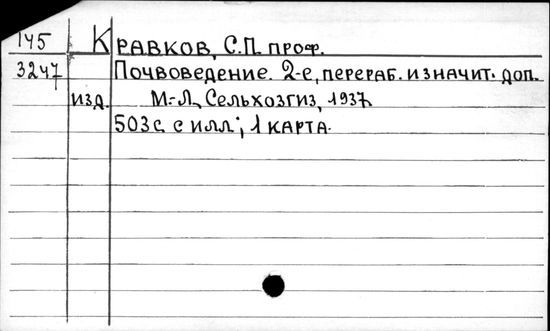 145 КРАВКОВ, С.П. ПРОФ.
3247 ПОЧВОВЕДЕНИЕ. 2-е, ПЕРЕРАБ. И ЗНАЧИТ. ДОП.
ИЗД. М.-Л., СЕЛЬХОЗГИЗ, 1937.
503 с. с ИЛЛ.; 1 КАРТА.